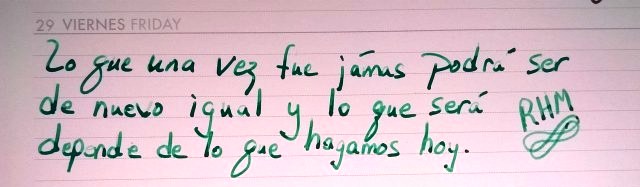 29 VIERNES FRIDAY
Lo que una vez fue jámas podrá ser
de nuevo igual y lo que será
depende de lo que hagamos hoy.
RHM